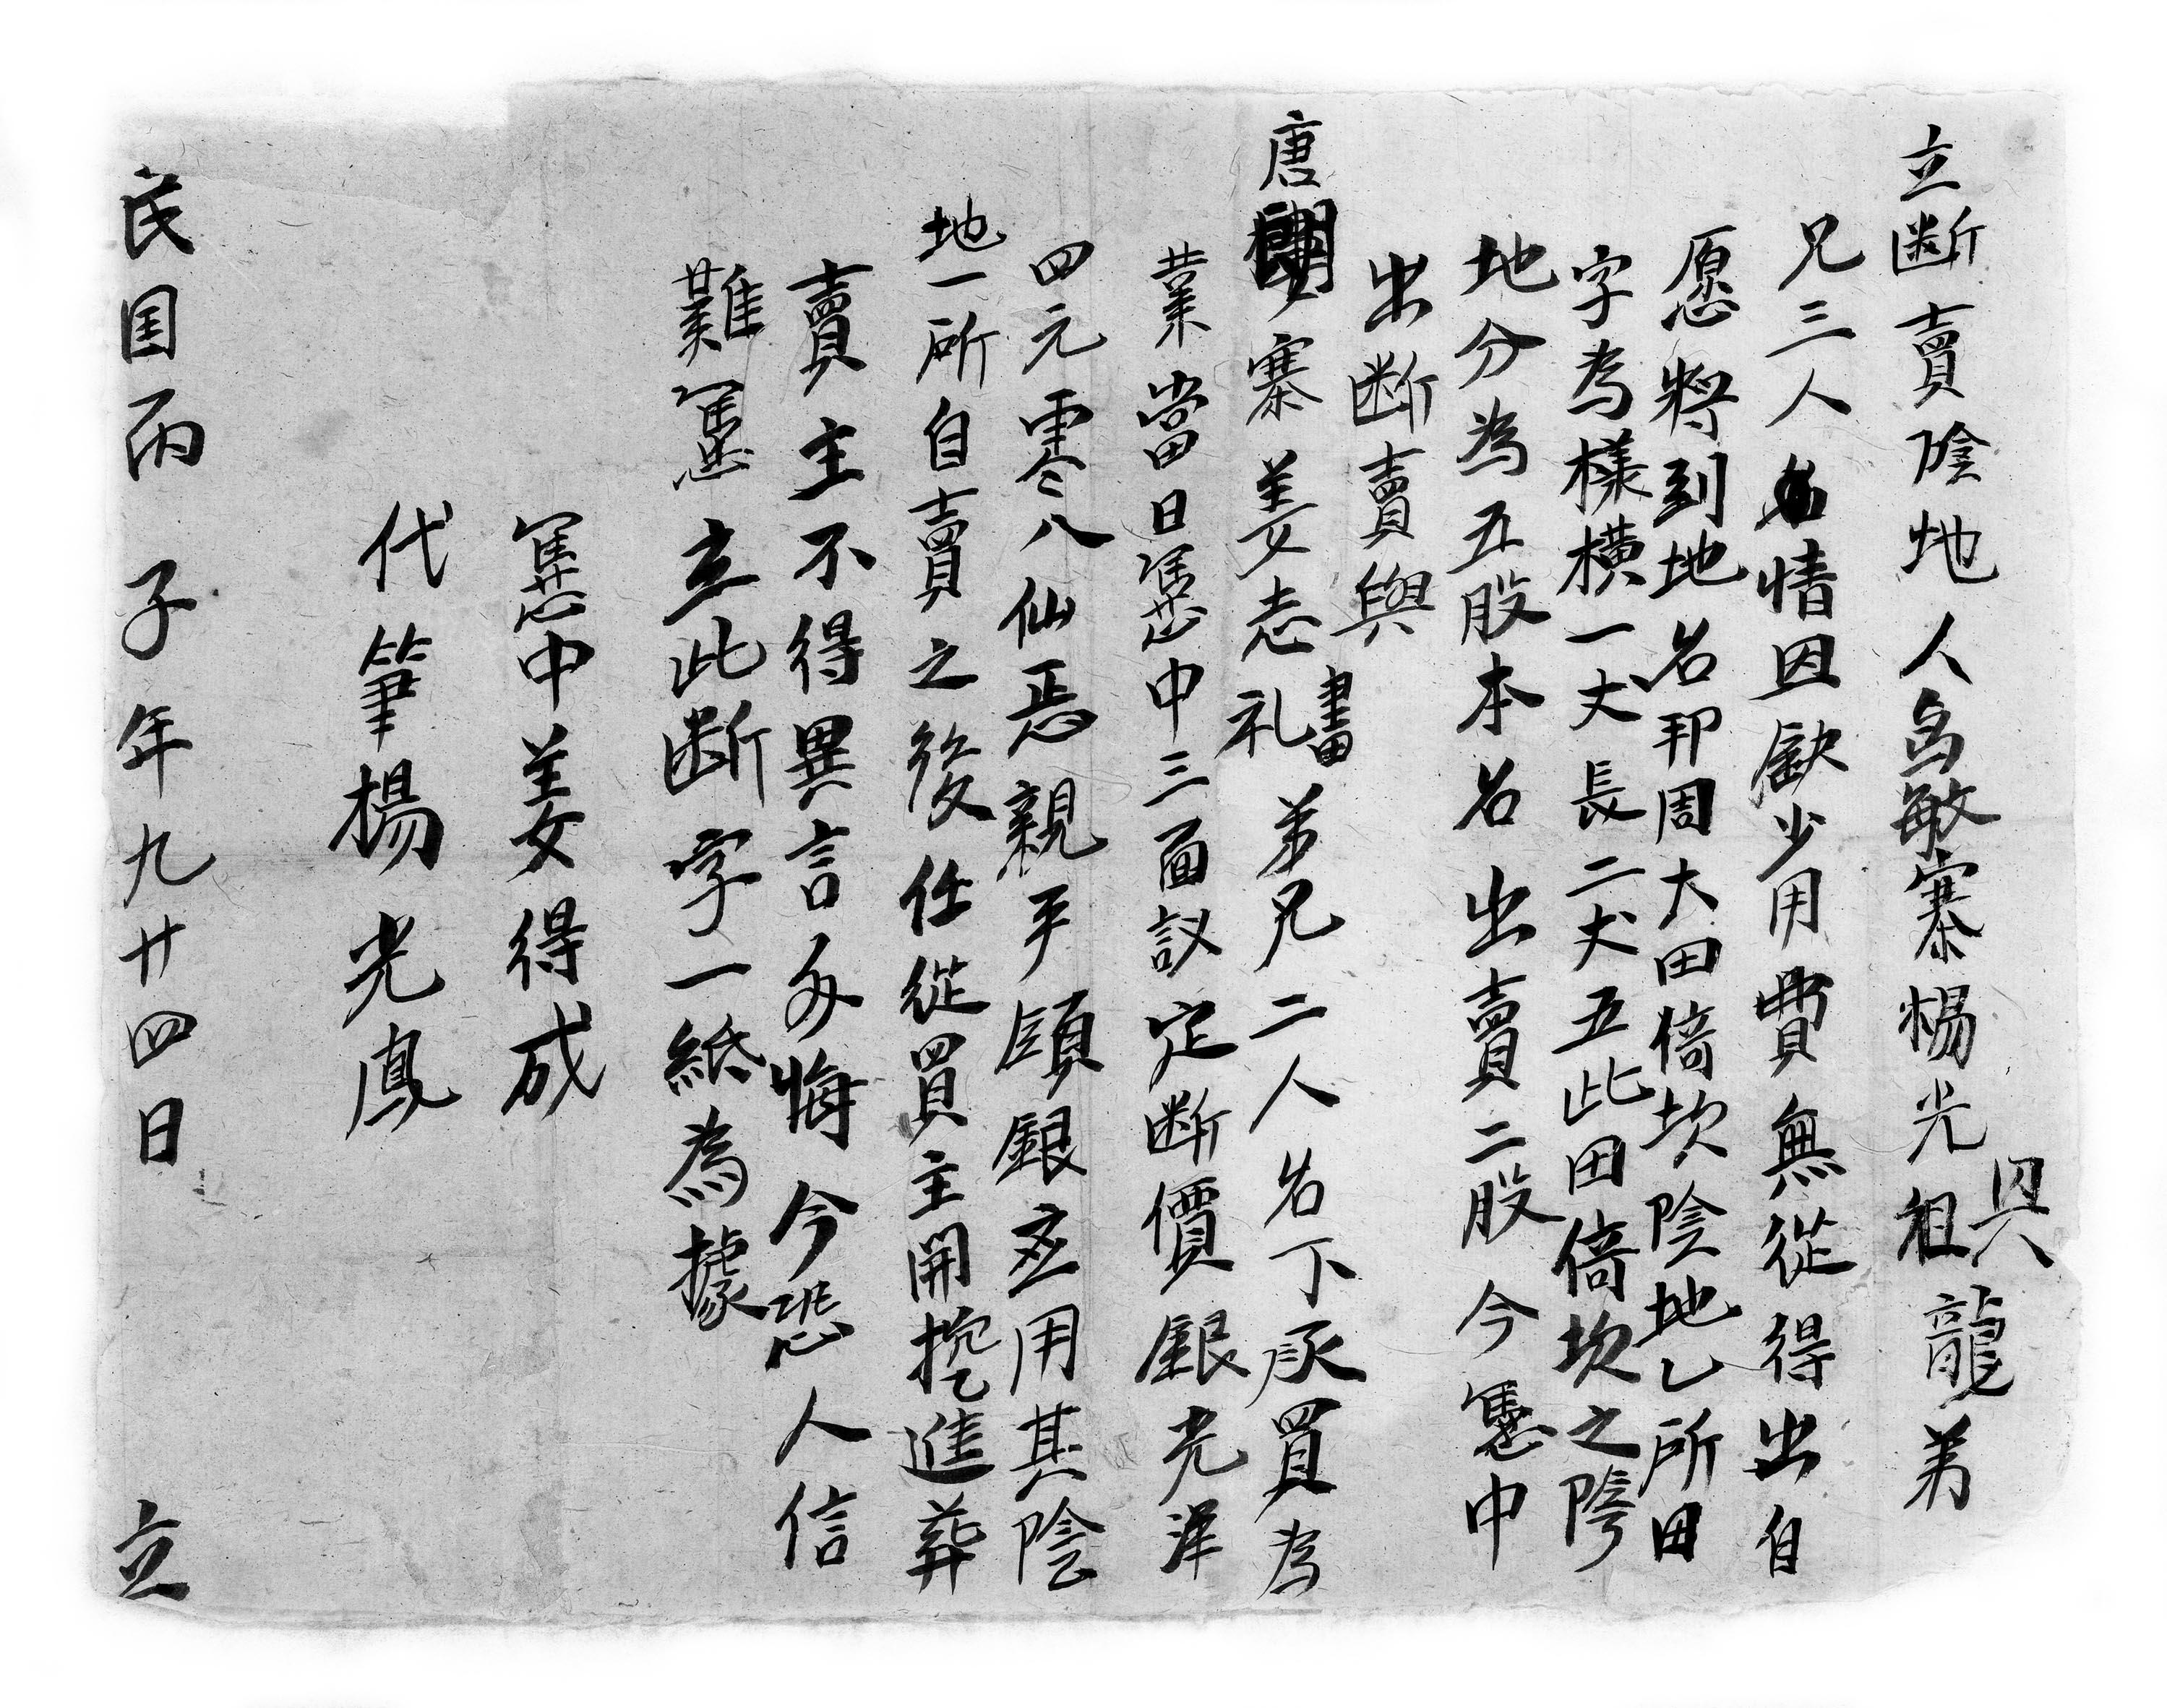 立断賣陰地人烏敏寨楊光祖龍弟
兄三人名情因缺少用費無從得出自
愿將到地名邦周大田倚坎陰地乙所田
字為樣橫一丈長二丈五此田倚坎之陰
地分為五股本名出賣二股今憑中
出断賣與
唐寨姜志礼書弟兄二人名下承買為
業當日憑中三面議定断價銀光洋
四元零八仙恁親手領銀應用其陰
地一所自賣之後任從買主開挖進葬
賣主不得異言多悔今恐人信
難憑立此断字一紙為據
憑中姜女得成
代筆楊光鳳
民国丙子年九廿四日立